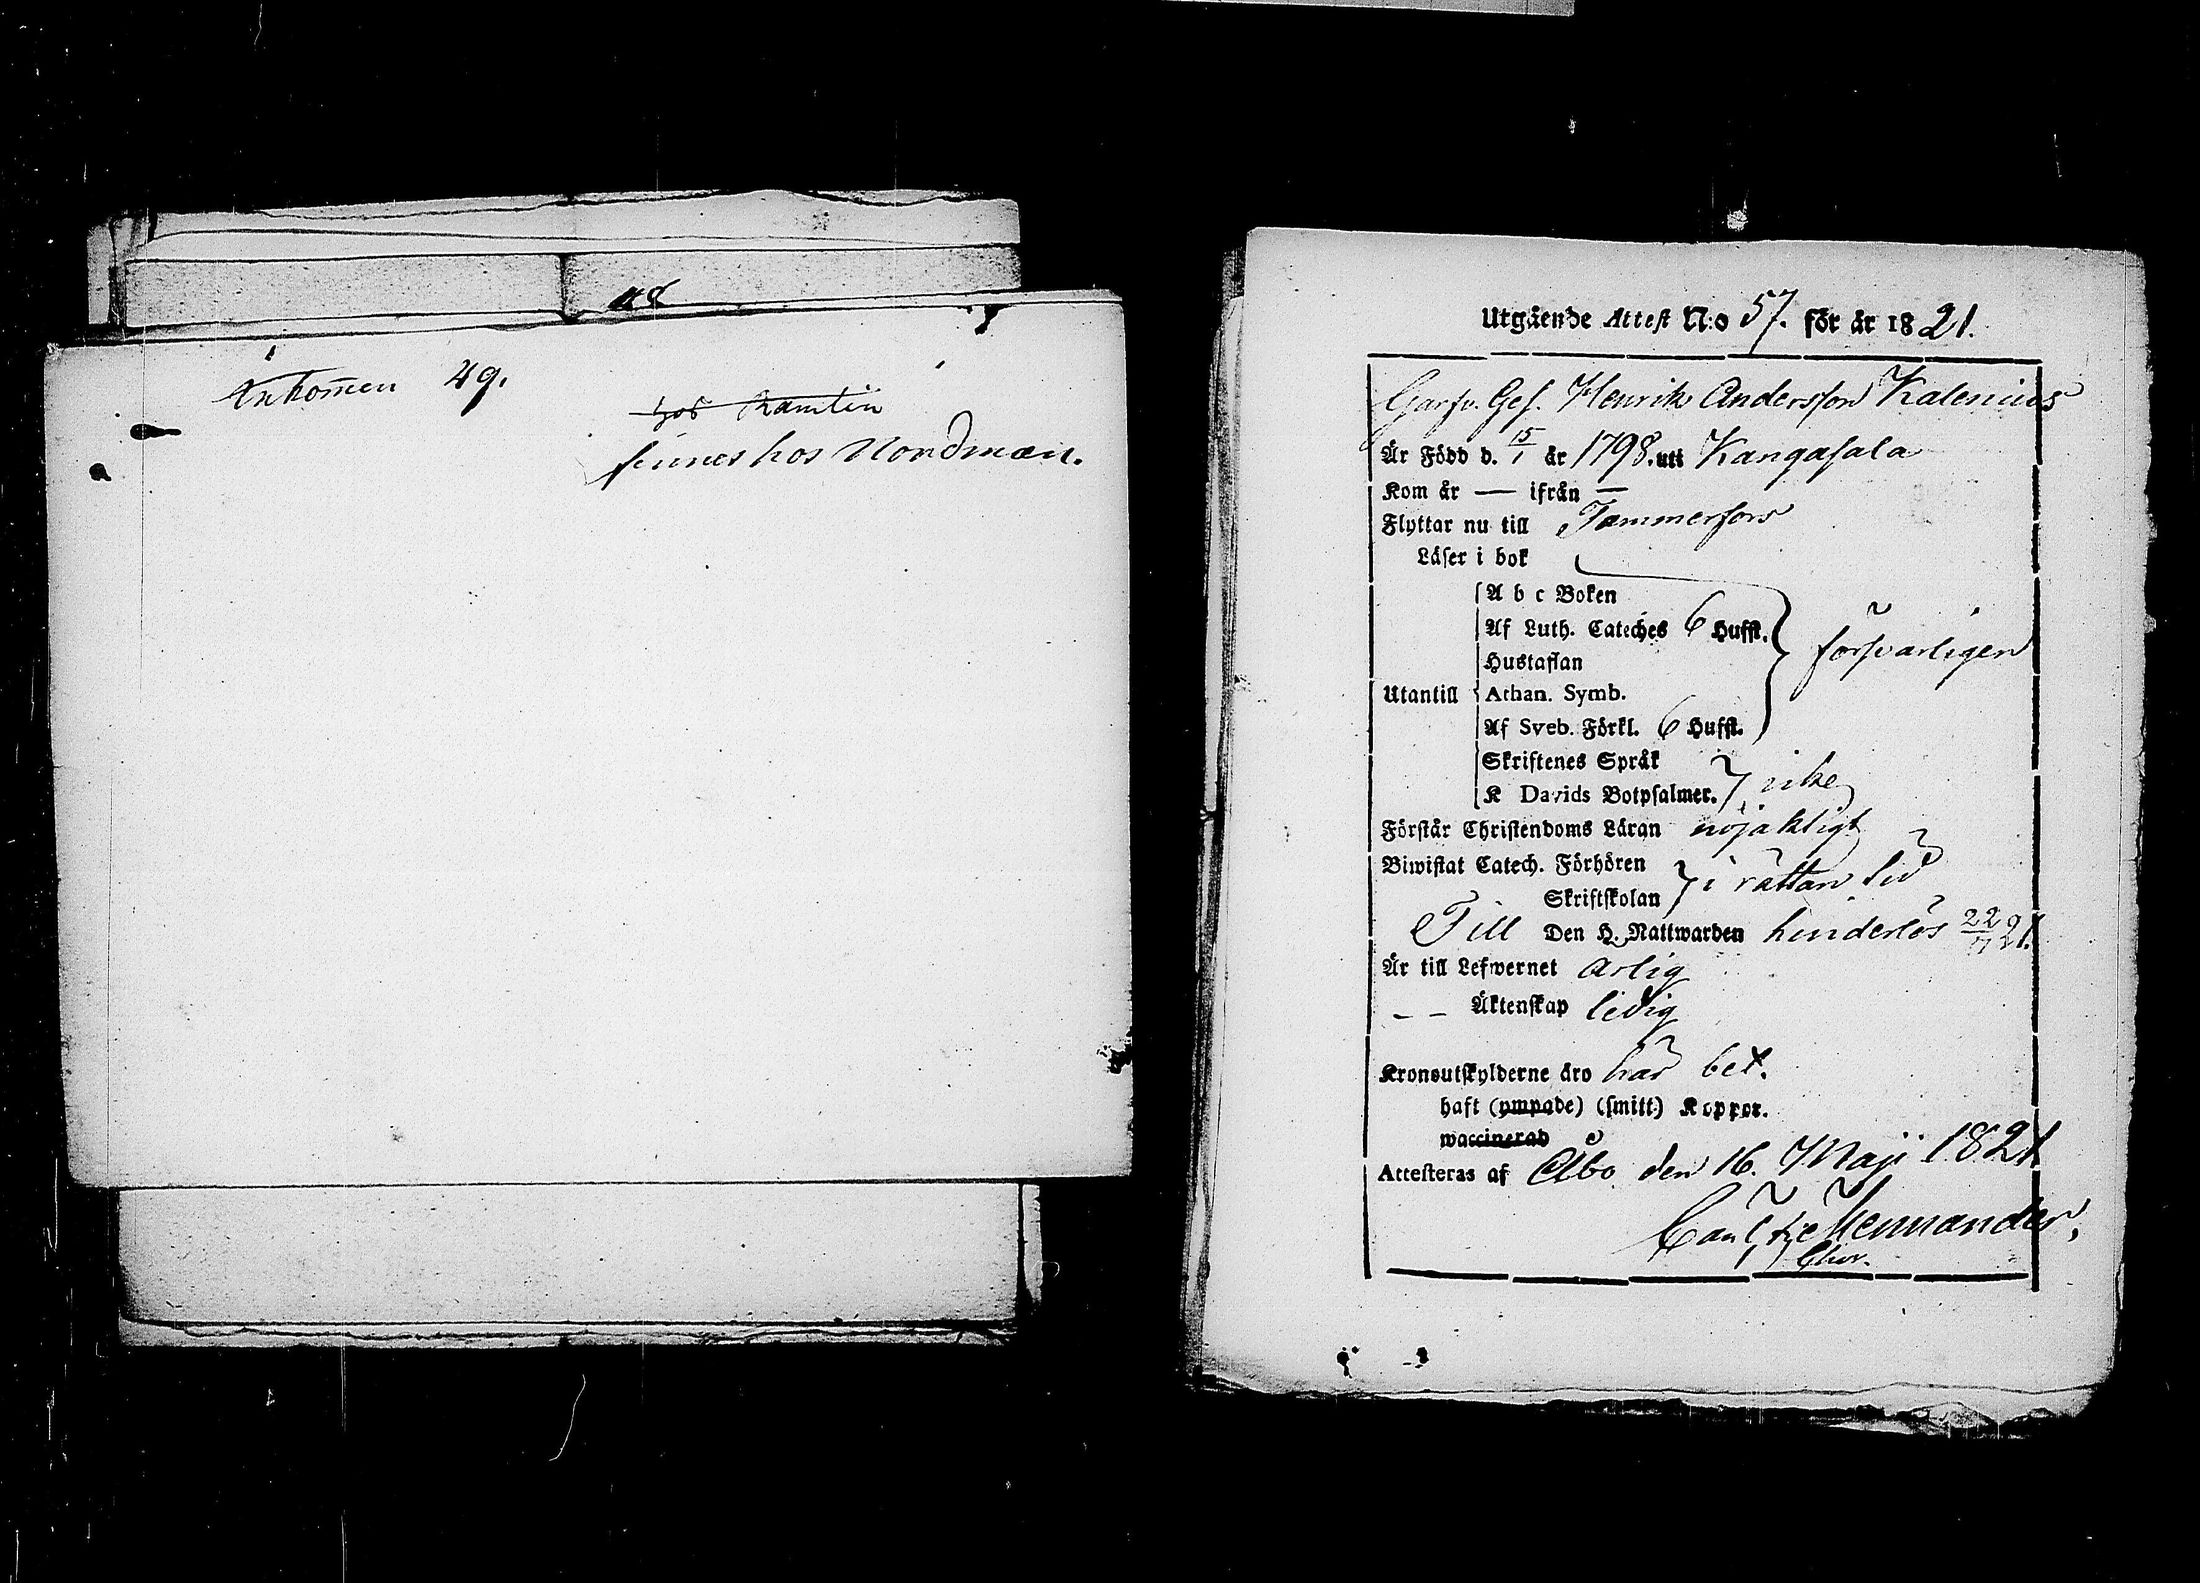 48
Ankommen 49.
hos Ramlin
finnes hos Nordman.
Utgående Attest N:o 57. för år 1821.
Garfv. Ges. Henrik Andersson Kalenius
Är Född d. 15/1 år 1798. uti Kangasala
Kom år — ifrån —
Flyttar nu till Tammerfors
Läser i bok
A b c Boken
Af Luth. Cateches 6 Hufst.
försvarligen
Hustaflan
Utantill Athan. Symb.
Af Sveb. Förkl. 6 Hufst.
Skriftenes Språk
K Davids Botpsalmer. icke
Förstår Christendoms Läran nöjaktligt
Biwistat Catech. Förhören
Skriftskolan i rättan tid
Till Den H. Nattwarden hinderlös 22/4 21.
Är till Lefwernet ärlig
— — Äktenskap ledig
Kronoutskylderne äro här bet.
haft (ympade) (smitt.) Koppor.
waccinerad
Attesteras af Åbo den 16. Maji 1821
Carl Mennander,